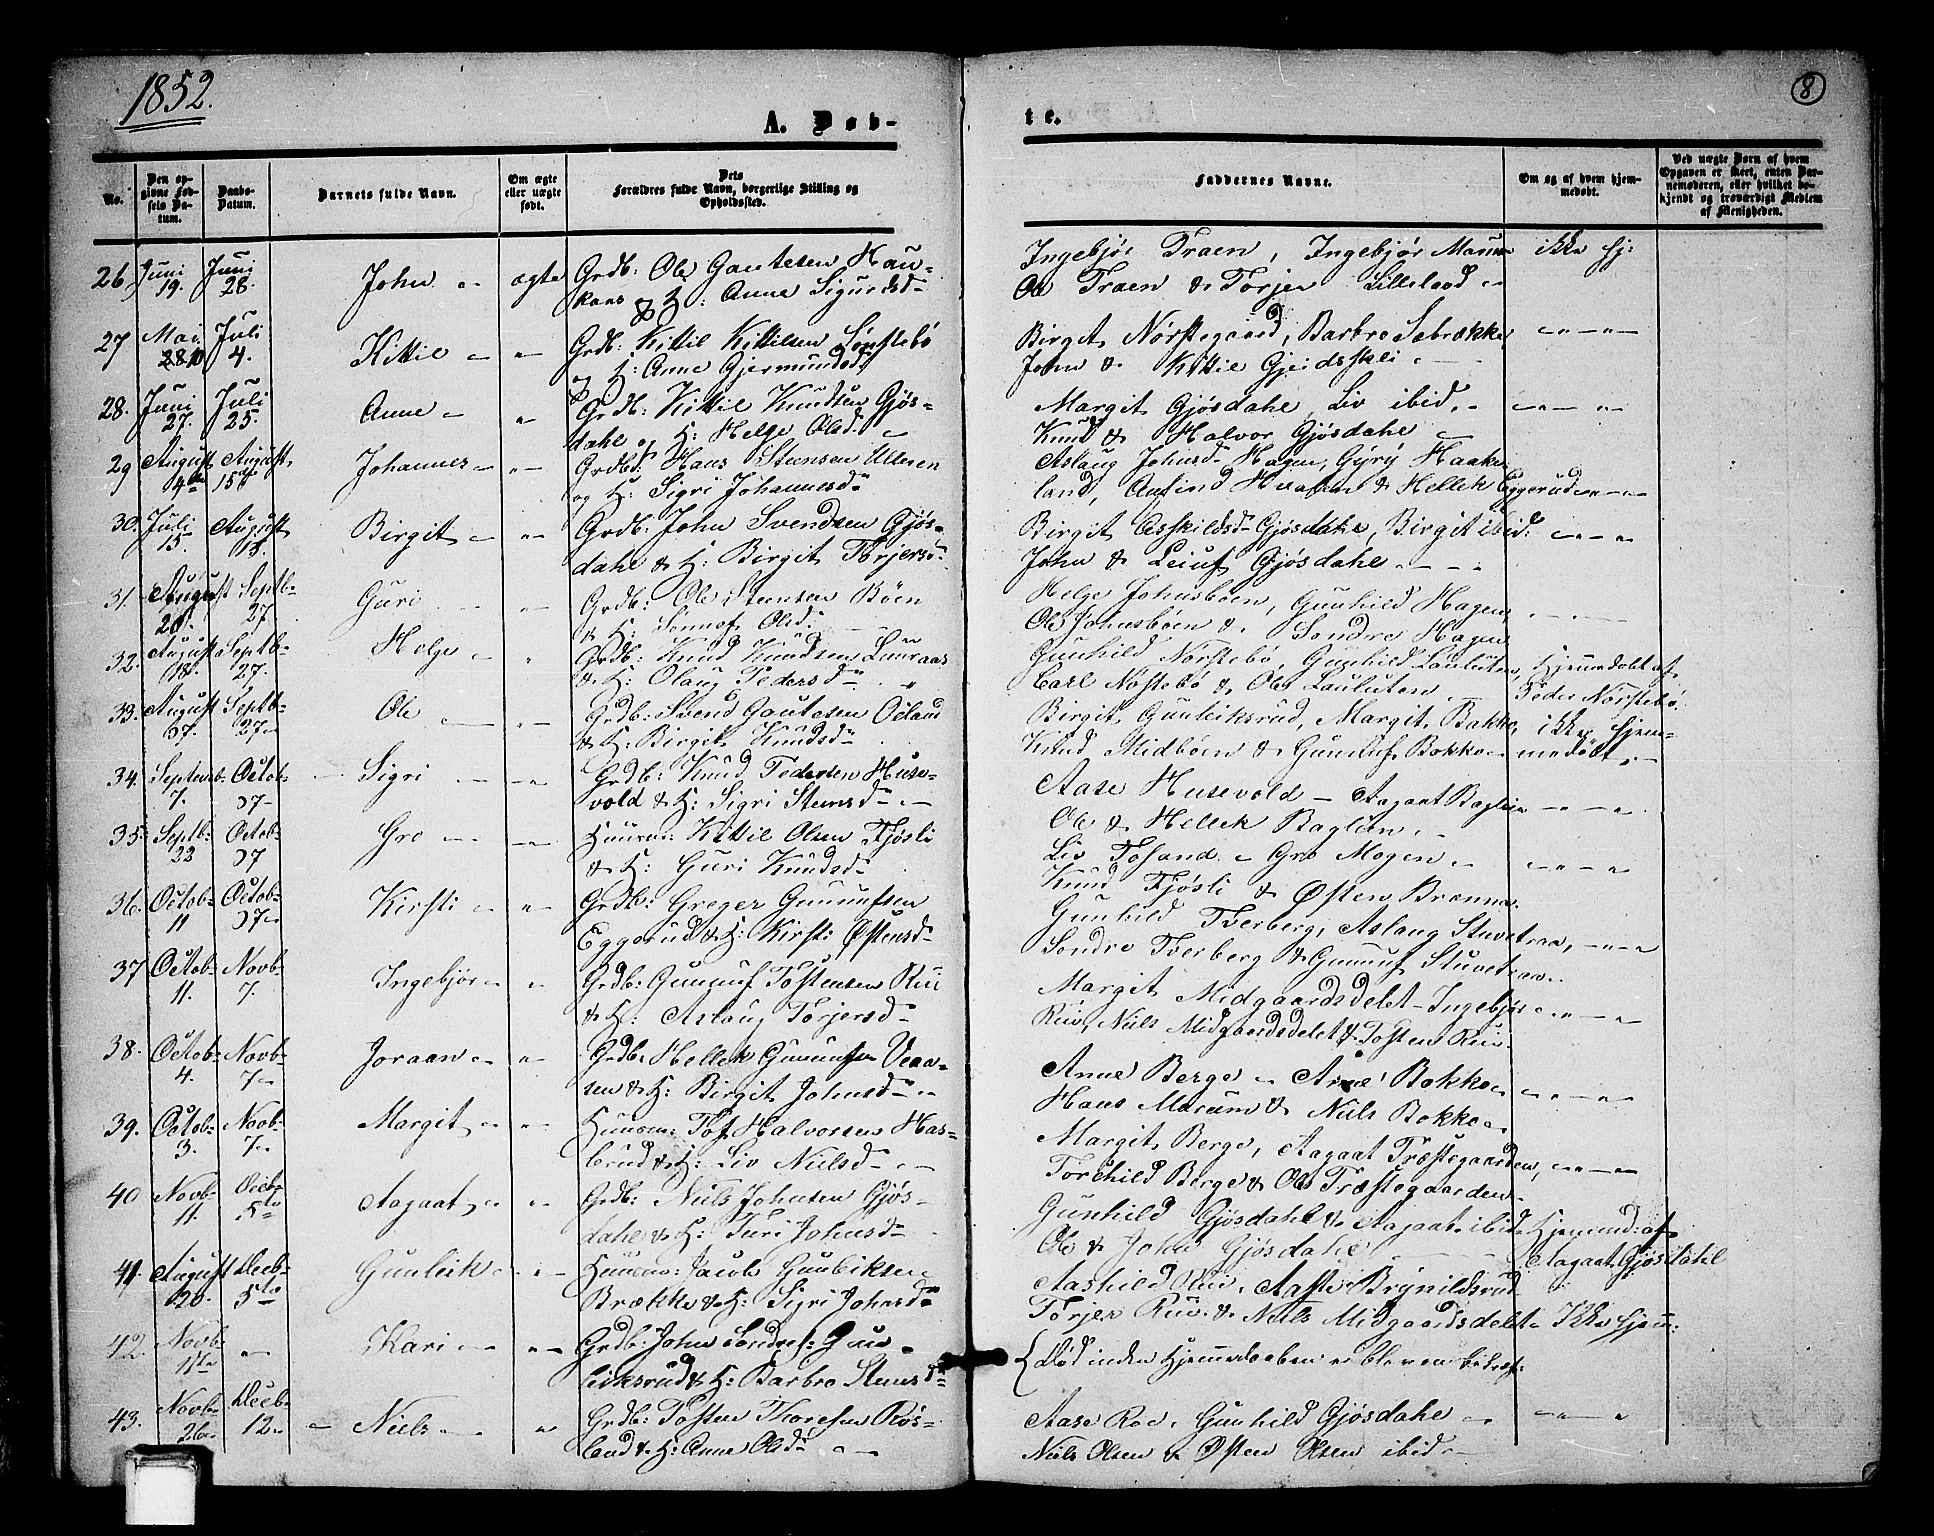 1852.
8
A. Døb-
te.
No.
Den op-
givne Fød-
sels Da-
tum.
Daabs-
Datum.
Barnets fulde Navn.
Om ægte
eller uægte
født.
Dets
Forældres fulde Navn, borgerlige Stilling og
Opholdssted.
Faddernes Navne.
Om og af hvem hjem-
medøbt.
Ved uægte Børn af hvem
Opgaven er skeet, enten Bar-
nemoderen, eller hvilket be-
kjendt og troværdigt Medlem
af Menigheden.
26. Juni 19. Juni 28. John ægte Grdb: Ole Gautesen Hau-
kaas og H: Anne Sigurdsd
Ingebjør Traen, Ingebjør Maum ikke hj:
Ole Traen & Torjer Lilleland
27 Mai 10 Juli 4. Kittil Grdb: Kittil Kittilsen Sønstebø
og H: Anne Gjermundsd
Birgit Nørstegaard, Barbro Sebrække
John & Kittil Gjeidsskeli
28. Juni 27. Juli 25. Anne Grdb: Kittil Knudsen Gjøs-
dahl og H: Helge Olsd.
Margit Gjøsdahl, Liv ibid.
Knud & Halvor Gjøsdahl
29 August 4de August 15 Johannes Grdb: Hans Steensen Uteren
og H: Sigri Johannesd
Aslaug Johnsd Hagen, Gyry Haake-
land, & Hellek Eggerud
30. Juli 15. August 18. Birgit Grdb: John Svendsen Gjøs-
dahl & H: Birgit Torjersd
Birgit Asskildsd Gjøsdahl, Birgit ibid:
John & Leiuf Gjøsdahl
31. August 20. Septb 27 Guri Grdb: Ole Steensen Bøen
& H: Sonnof Olsd.
Helge Johnsbøen, Gunhild Hagen,
Ole Johnsbøen & Sondre Hagen
32. August 18. Septb 27. Helge Grdb: Knud Knudsen Lauraas
& H: Olaug Pedersd
Gunhild Nørstebø, Gunhild Lauluten, Hjemmedøbt af
Carl Nøstebø & Ole Lauluten. Peder Nørstebø.
33. August 7. Septb 27 Ole Grdb: Svend Gautesen Øeland
& H: Birgit Knudsd
Birgit Gunleiksrud, Margit Bakke, ikke hjem-
Knud Midbøen & Gunuuf Bokko medøbt.
34. Septemb 7. Octob 7 Sigri Grdb: Knud Pedersen Huse-
vold & H: Sigri Steensd
Aase Husevold – Aagaat Baglien
Ole & Hellek Baglien.
35. Septb: 22 Octob 7 Gro Huusm: Kittil Olsen Fjøsli
& H: Guri Knudsd
Liv Fosand. Gro Mogen
Knud Fjøsli & Østen Brenna
36. Octob 11 Octob 7 Kirsti Grdb: Greger Gunuufsen
Eggerud & H: Kirsti Østensd
Gunhild Tverberg, Aslaug Stuvetraa,
Sondre Tverberg & Gunuuf Stuvetraa
37 Octob 11. Novb 7. Ingebjør Grdb: Gunuuf Tostensen Rui
& H: Aslaug Torjersd
Margit Midgaardsdelet – Ingebjør
Rui, Niels Midgaardsdelet & Tosten Rui
38. Octob 4. Novb 7 Joraan Grdb: Hellek Gunuufsen Veaa-
sen & H: Birgit Johnsd
Anne Berge Bokko
Hans Marum & Niels Bokko
39. Octob 3. Novb 7 Margit Huusm: Tof Halvorsen Has-
brud & H: Liv Nielsd
Margit Berge, Aagaat Træstegaarden,
Torchild Berge & Ole Træstegaarden
40 Novb 11. Decb 5te Aagaat Grdb: Niels Johnsen Gjøs-
dahl & H: Turi Johnsd
Gunhild Gjøsdahl & Aagaat ibid Hjemmd: af
Ole & John Gjøsdahl Aagaat Gjøsdahl
41. August 20. Decb 5te Gunleik Huusm: Jacob Gunleiksen
Brække & H: Sigri Johnsd
Aashild Rui, Aaste Brynildsrud
Torjer Rui & Niels Midgaardsdelet Ikke hjem:
42. Novb 11te Kari Grdb: John Sondres: Gun-
leiksrud & H: Barbro Steensd
Død inden Hjemmedaaben
43. Novb 26 Decb 12 Niels Grdb: Tosten Thoresen Røs-
land & H: Anne Olsd
Aase Roe, Gunhild Gjøsdahl
Niels Olsen & Østen Olsen ibid